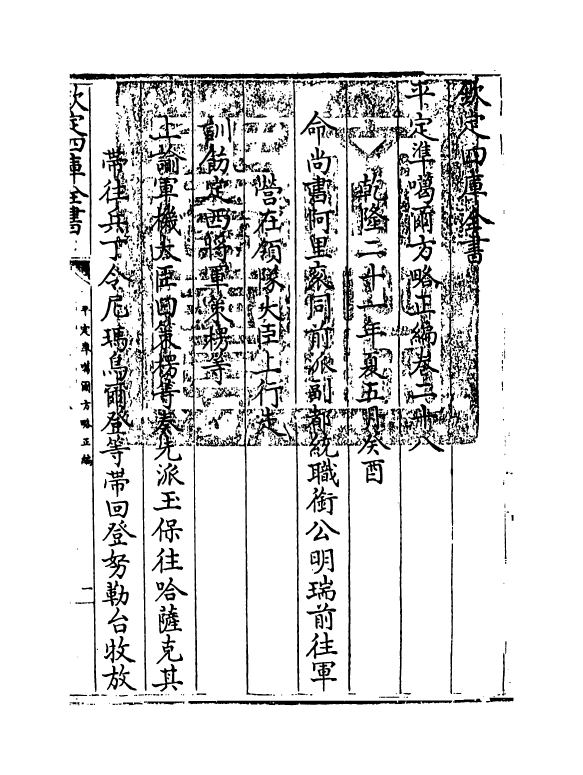 欽定四庫全書
平定準噶爾方略正編卷二十八
乾隆二十一年夏五月癸酉
命尚書阿里衮同前派副都統職銜公明瑞前往軍
營在領隊大臣上行走
訓飭定西將軍策楞等
上諭軍機大臣曰策楞等奏先派王保往哈薩克其
帶往兵丁令尼瑪烏爾登等帶回登努勒台牧放
欽定四庫全書
平定準噶爾方略正編
一